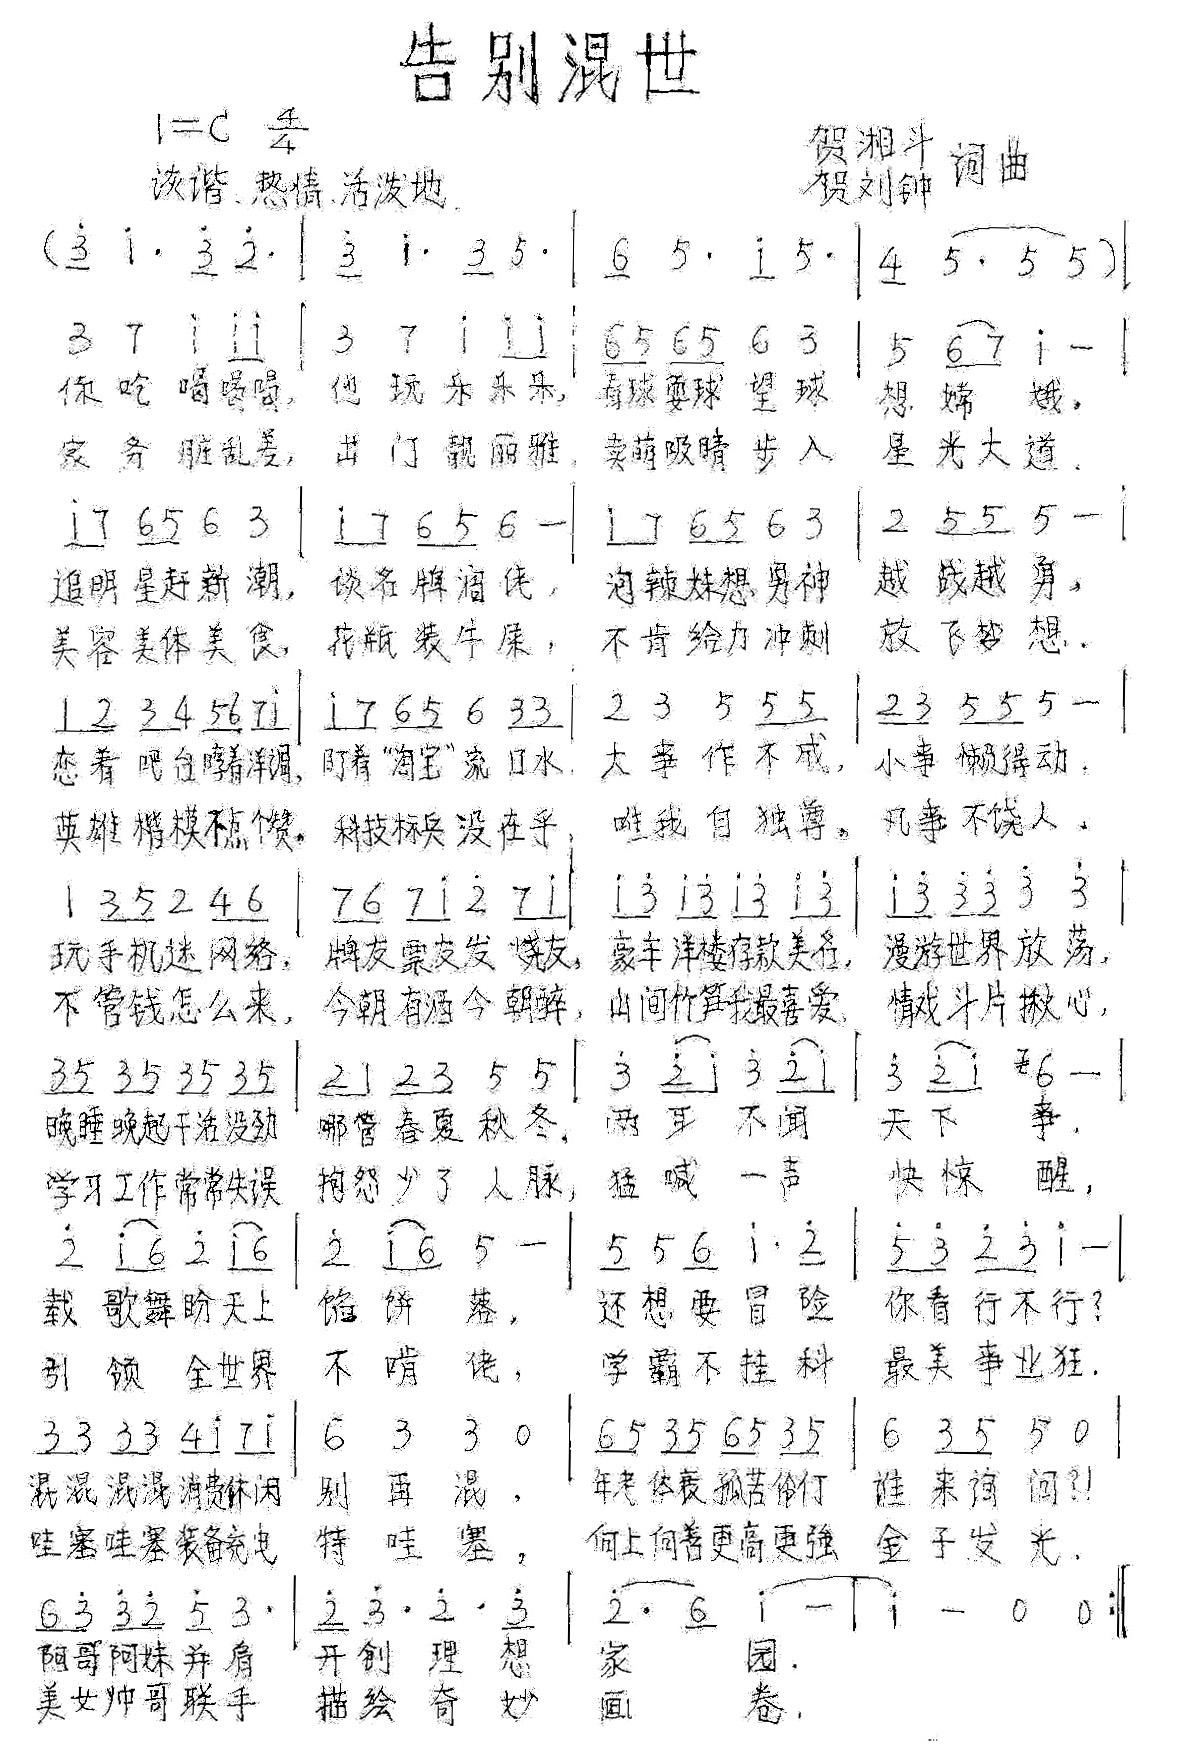 告别混世
1=C 4/4
贺湘斗
贺刘钟 词曲
诙谐、热情、活泼地
(3̇ 1̇· 3̇ 2̇· | 3̇ 1̇· 3 5· | 6 5· 1̇ 5· | 4 5· 5 5) |
3 7 1̇ 1̇1̇ | 3 7 1̇ 1̇ 1̇ | 65 65 6 3 | 5 67 1̇ — |
你吃喝喝喝, 他玩乐乐乐, 看球耍球望球 想嫦娥。
家务脏乱差, 出门靓丽雅, 卖萌吸睛步入 星光大道.
1̇7 65 6 3 | 1̇7 65 6 — | 1̇7 65 6 3 | 2 55 5 — |
追明星赶新潮, 谈名牌酒佬, 泡辣妹想男神 越战越勇。
美容美体美食, 花瓶装牛屎, 不肯给力冲刺 放飞梦想.
12 34 567 1̇ | 1̇7 65 6 33 | 2 3 5 55 | 23 55 5 — |
恋着吧台哼着洋调, 盯着“淘宝”流口水. 大事作不成, 小事懒得动.
英雄楷模不点个赞。科技标兵没在乎, 唯我自独尊。凡事不饶人.
1 35 2 46 | 76 71̇ 2̇ 71̇ | 1̇3̇ 1̇3̇ 1̇3̇ 1̇3̇ | 1̇3̇ 3̇3̇ 3̇ 3̇ |
玩手机迷网络, 牌友票友发烧友, 豪车洋楼存款美名, 漫游世界放荡,
不管钱怎么来, 今朝有酒今朝醉, 山间竹笋我最喜爱, 情戏斗片揪心,
35 35 35 35 | 21 23 5 5 | 3̇ 2̇1̇ 3̇ 2̇1̇ | 3̇ 2̇1̇ 6 — |
晚睡晚起干活没劲 哪管春夏秋冬. 两耳不闻 天下事.
学习工作常常失误 抱怨少了人脉, 猛喊一声 快惊醒,
2̇ 1̇6 2̇ 1̇6 | 2̇ 1̇6 5 — | 5 5 6 1̇· 2̇ | 5̇3̇ 2̇3̇ 1̇ — |
载歌舞盼天上 馅饼落, 还想要冒险 你看行不行?
引领全世界 不啃佬, 学霸不挂科 最美事业狂.
33 33 41̇ 71̇ | 6 3 3 0 | 65 35 65 35 | 6 35 5 0 |
混混混混消费休闲 别再混, 年老体衰孤苦伶仃 谁来询问?!
哇塞哇塞装备充电 特哇塞, 向上向善更高更强 金子发光.
63̇ 3̇2̇ 5̇ 3· | 2̇ 3̇· 2̇· 3̇ | 2̇· 6 1̇ — | 1̇ — 0 0 :‖
阿哥阿妹并肩 开创理想 家园.
美女帅哥联手 描绘奇妙 画卷.